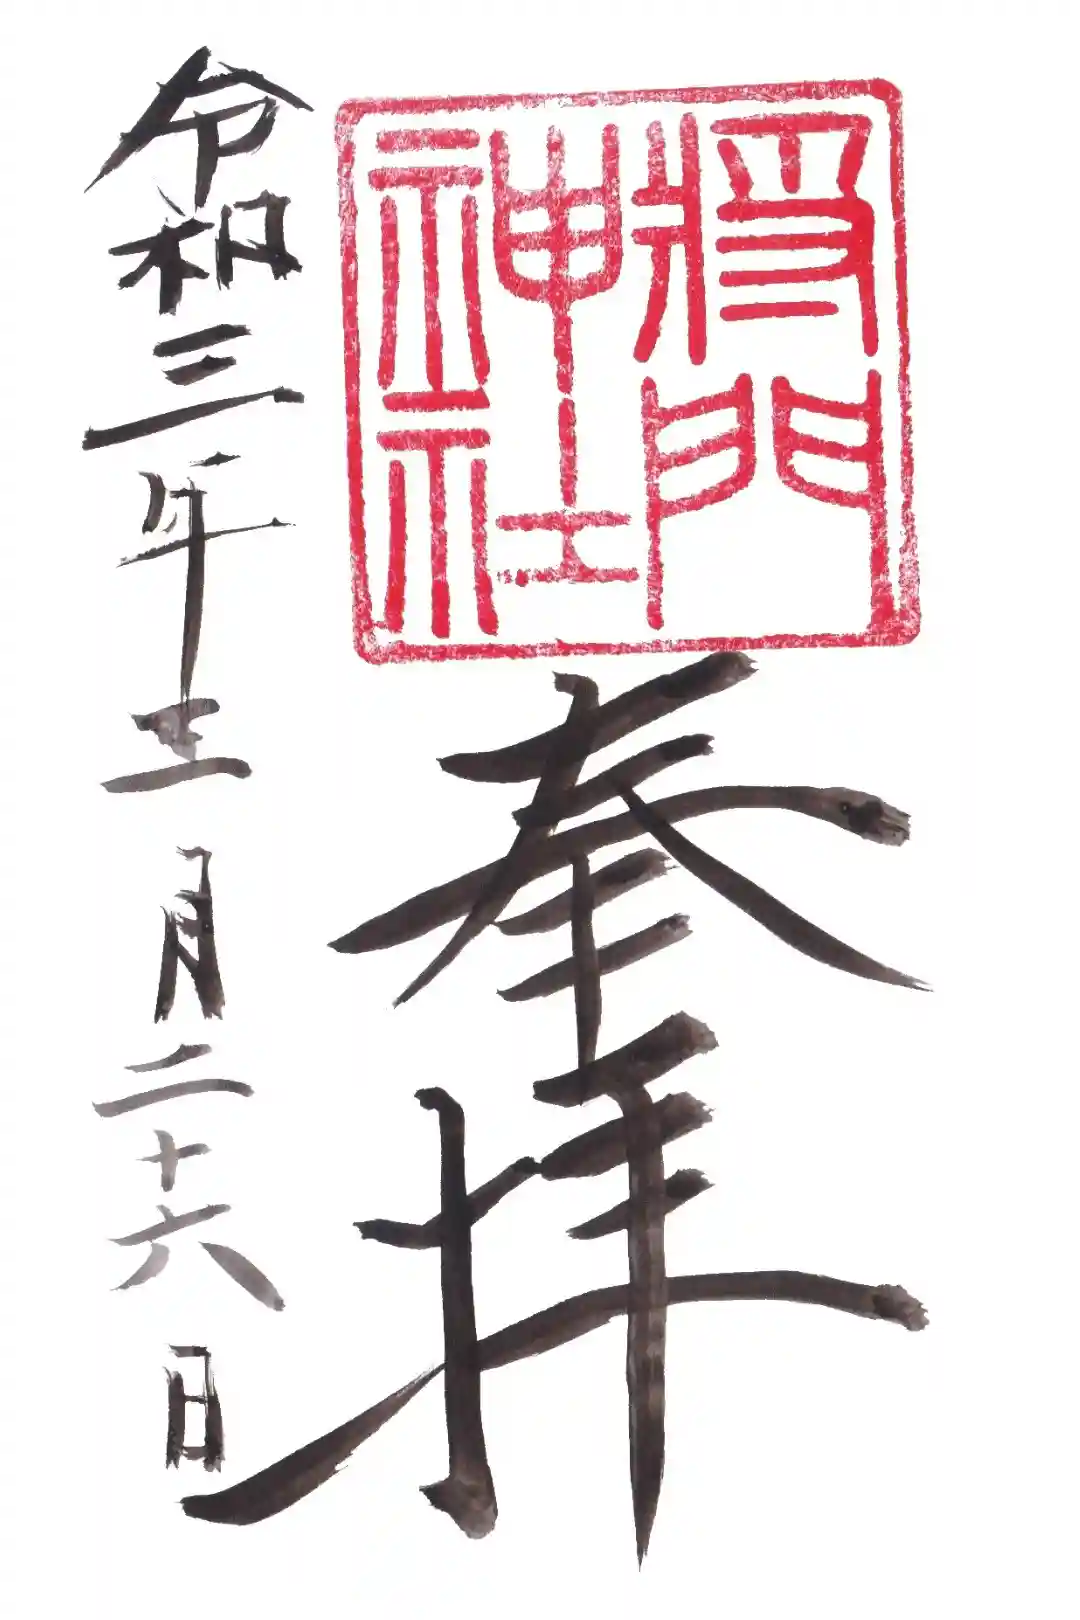 将門
神社
奉拝
令和三年三月二十六日